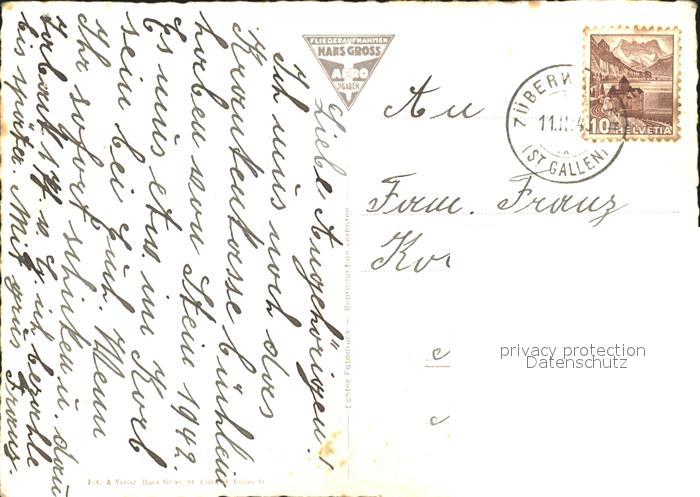 FLIEGERAUFNAHMEN
HANS GROSS
AERO
ST. GALLEN
Liebe Angehörigen!
Ich muss noch das
Krankenkasse büchlein
haben von Stein 1942.
Es muss etw. im Korb
sein bei Euch. Wenn
Ihr sofort schiken u. dan
bis später. Mit grus Franz.
Echter Fotodruck — Reproduktion verboten
Foto & Verlag Hans Gross, St.
ZÜBERW
11.II.4
(ST GALLEN)
10 HELVETIA
An
Fam. Franz
privacy protection
Datenschutz